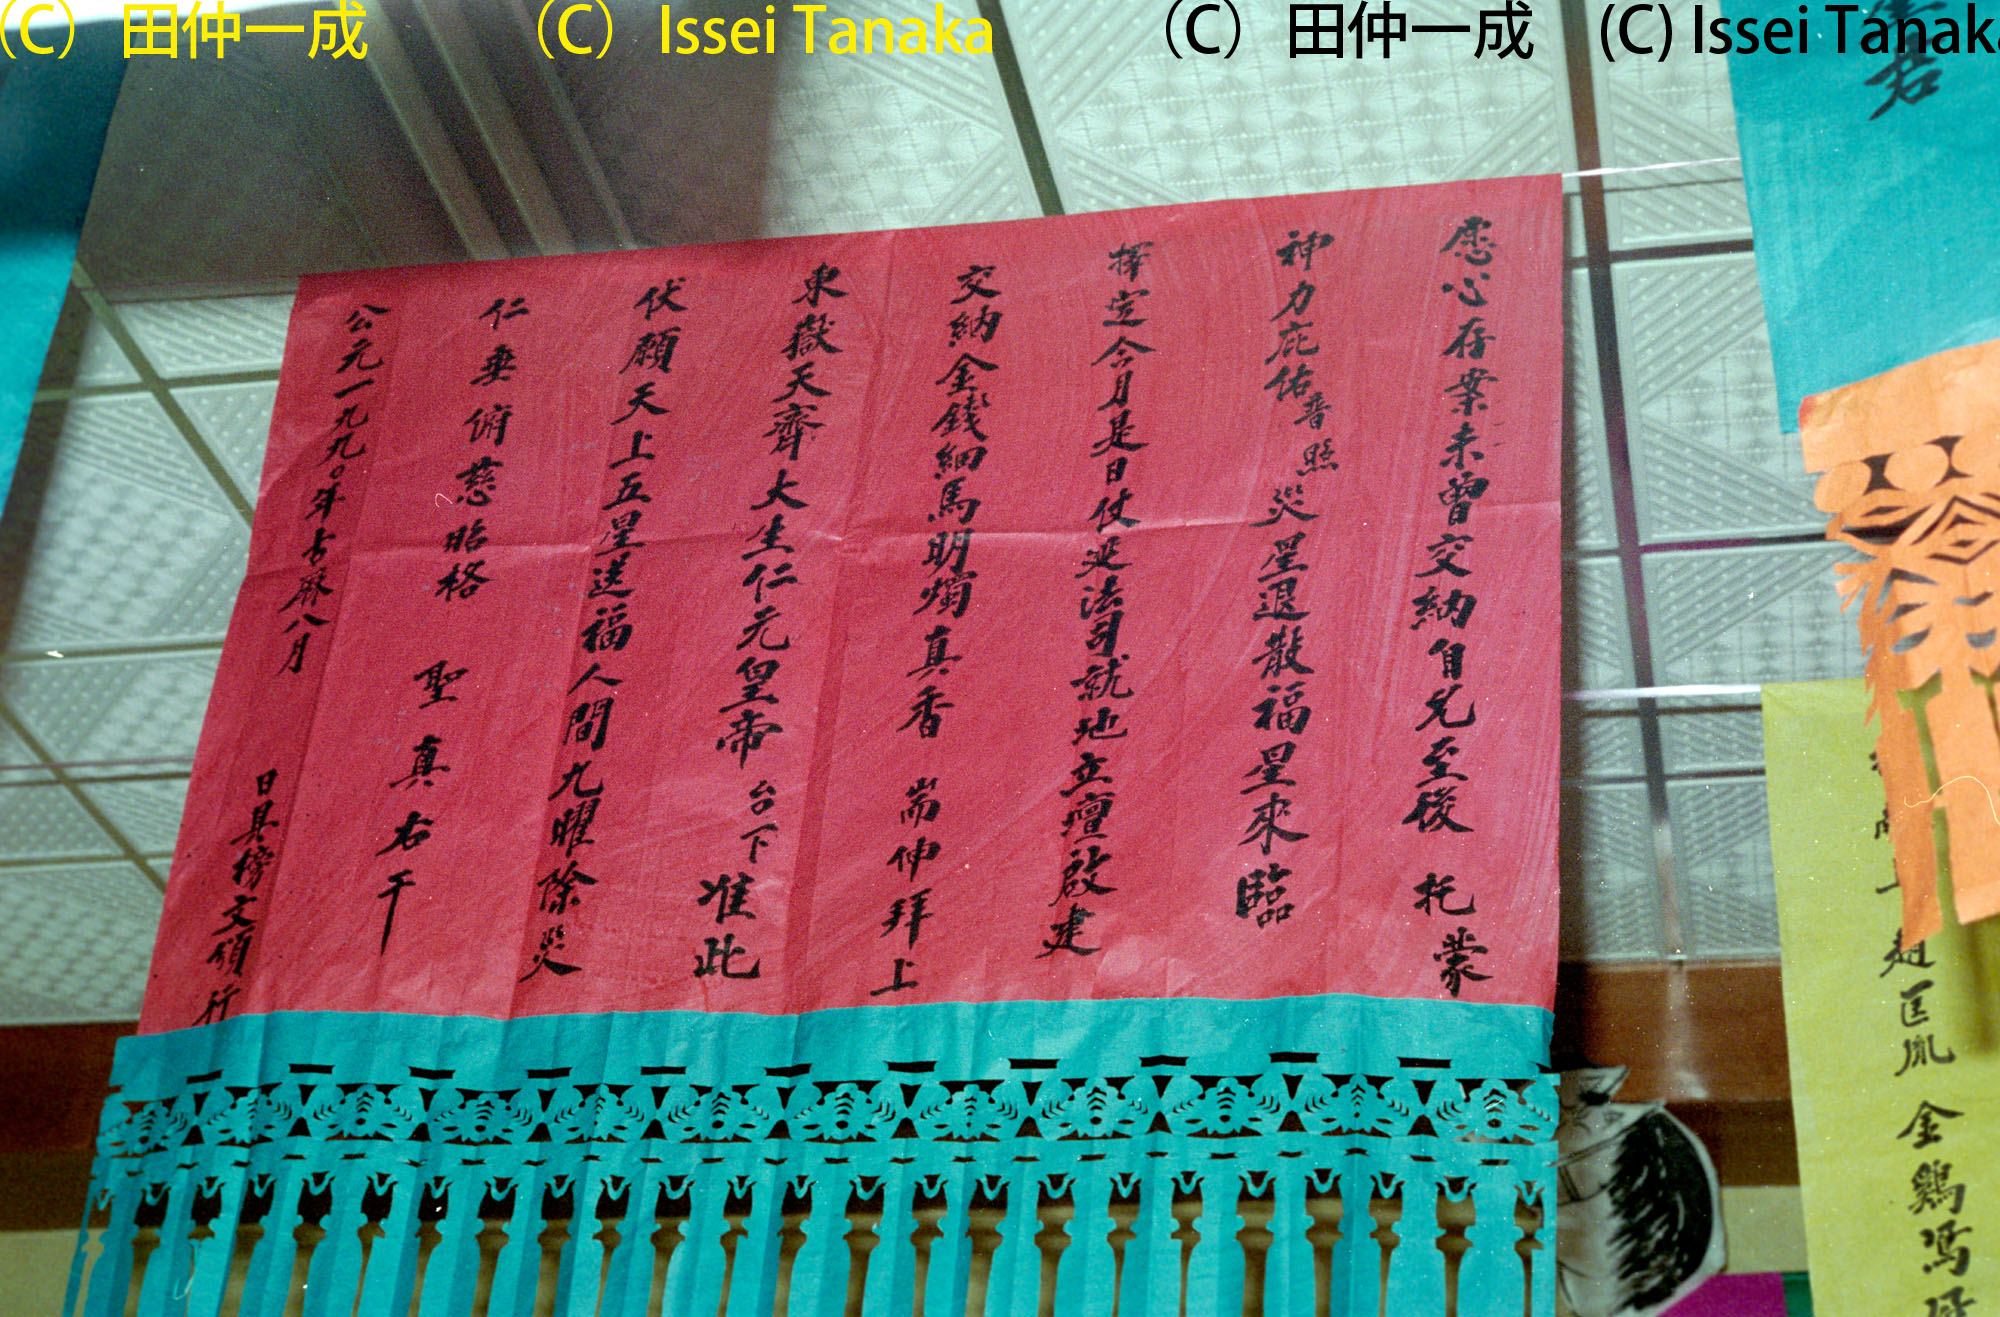 (C) 田仲一成 (C) Issei Tanaka (C) 田仲一成 (C) Issei Tanaka
愿心存案未曾交納自兄至後 托蒙
神力庇佑普照災星退散福星來臨
擇定今月是日仗延法司就地立壇啟建
交納金錢細馬明燭真香 耑伸拜上
東嶽天齊大生仁元皇帝 台下 准此
伏願天上五星送福人間九曜除災
仁垂俯慈昭格 聖真右干
公元一九九〇年古厤八月 日具榜文頒行
趙匡胤 金鷄馮